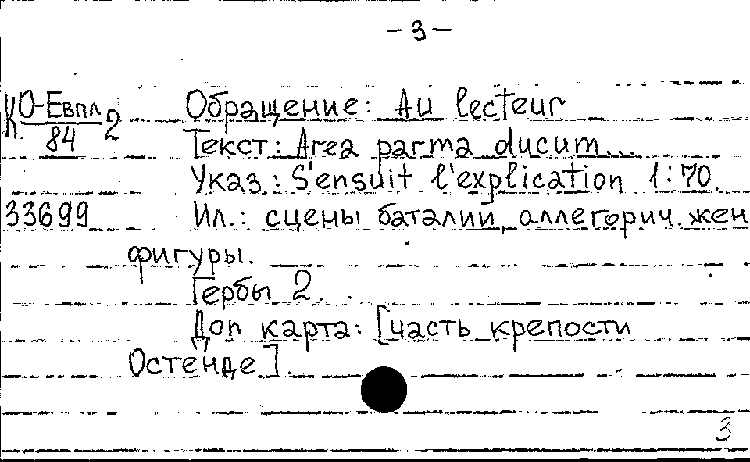 - 3 -
КО-Евпл 2 Обращение: Au lecteur
84 Текст: Area parma ducum...
Указ.: S'ensuit l'explication 1:70.
33699 Ил.: сцены баталии, аллегорич. жен
фигуры.
Гербы 2.
Доп карта: [часть крепости
Остенде].
3